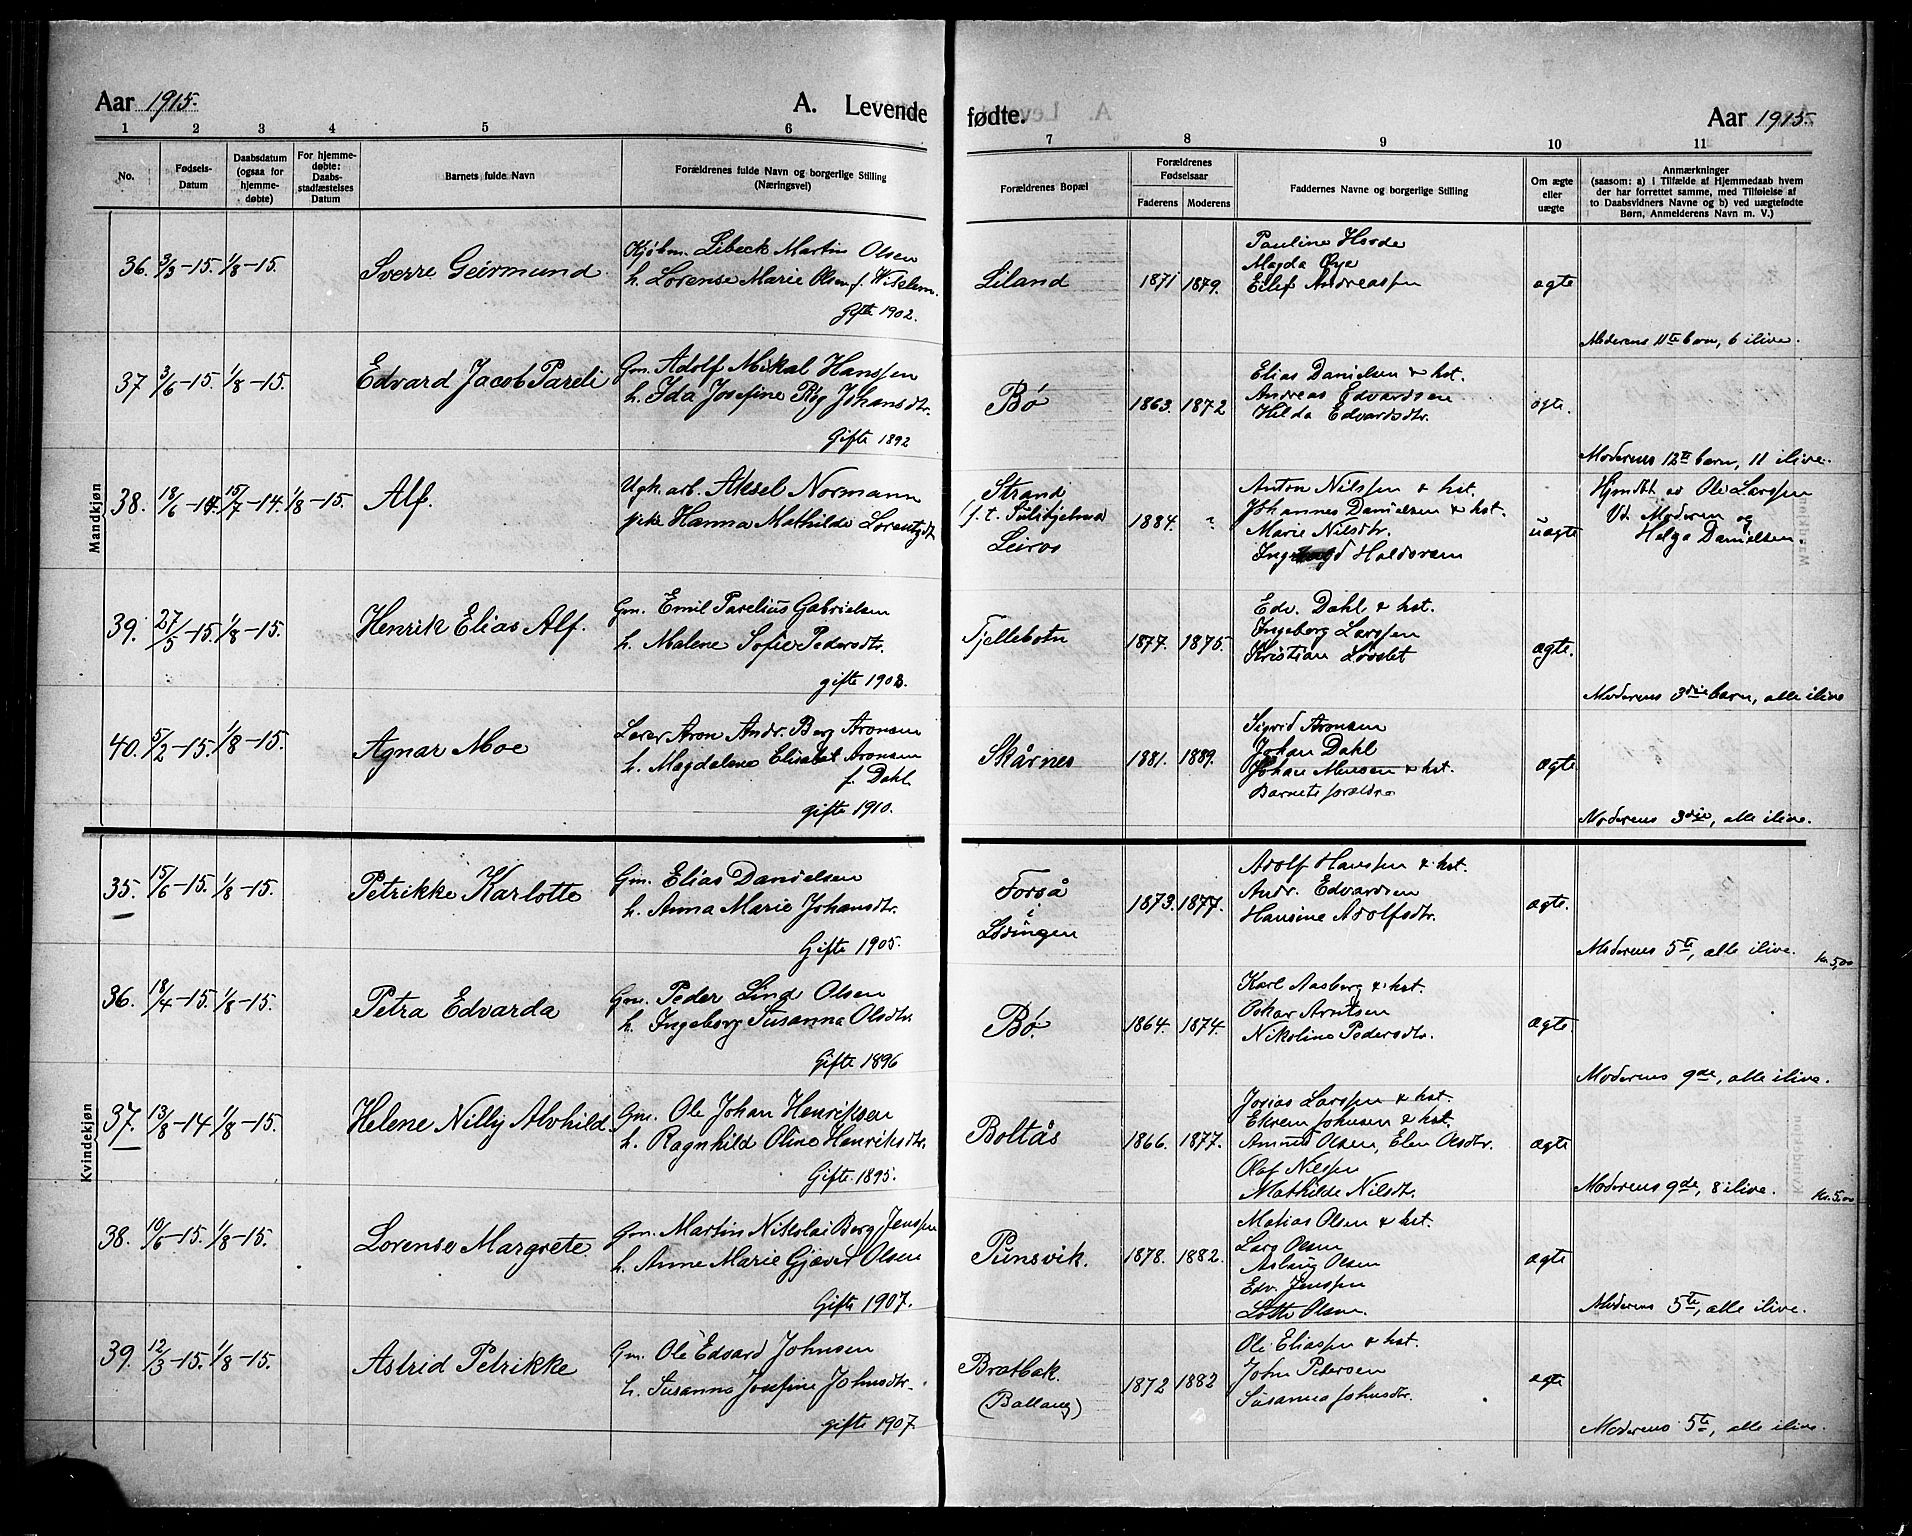 Aar 1915.
A. Levende
fødte.
Aar 1915.
1 2 3 4 5 6 7 8 9 10 11
No.
Fødsels-
Datum
Daabsdatum
(ogsaa for
hjemme-
døbte)
For hjemme-
døbte:
Daabs-
stadfæstelses
Datum
Barnets fulde Navn
Forældrenes fulde Navn og borgerlige Stilling
(Næringsvei)
Forældrenes Bopæl
Forældrenes
Fødselsaar
Faderens Moderens
Faddernes Navne og borgerlige Stilling
Om ægte
eller
uægte
Anmærkninger
(saasom: a) i Tilfælde af Hjemmedaab hvem
der har forrettet samme, med Tilføielse af
to Daabsvidners Navne og b) ved uægtefødte
Børn, Anmelderens Navn m. V.)
Mandkjøn
36. 3/3-15. 1/8-15. Sverre Geirmund.
Kjøbm. Libeck Martin Olsen
h. Lorense Marie Olsen f.
Gifte 1902.
Liland 1871 1879.
Pauline Horde
Magda Øye
Eilef Andreassen
ægte
Moderens 11te barn, 6 ilive.
37 3/6-15. 1/8-15. Edvard Jacob Pareli
Gm. Adolf Mikal Hanssen
h. Ida Josefine Røg Johansdtr.
Gifte 1892
Bø 1863. 1872
Elias Danielsen & hst.
Andreas Edvardsen
Hilda Edvardsdtr.
ægte.
Moderens 12te barn, 11 ilive.
38. 18/6-14. 15/7-14. 1/8-15. Alf.
Ugk. arb. Aksel Normann
pike Hanna Mathilde Lorentzdt
Strand
f. t. Sulitjelma
Leiros
1884. ?
Anton Nilssen & hst.
Johannes Danielsen & hst.
Marie Nilsdtr.
Halvorsen
uægte
Hjmdbt av Ole Larssen
Vd. Moderen og
Helga Danielsen
39. 27/5-15. 1/8-15. Henrik Elias Alf.
Gm. Emil Parelius Gabrielsen
h. Malene Sofie Pedersdtr.
gifte 1903.
Fjellebotn 1877. 1875.
Edv. Dahl & hst.
Ingeborg Larssen
Kristian Lovslet
ægte.
Moderens 3die barn, alle ilive
40. 5/2-15. 1/8-15. Agnar Moe
Lærer Aron Andr. Berg Aronsen
h. Magdalene Elisabet Aronsen
f. Dahl
gifte 1910.
Skårnes 1881. 1889.
Sigrid Aronsen
Johan Dahl
Johan Monsen & hst.
Barnets forældre
ægte
Moderens 3die, alle ilive.
Kvindekjøn
35. 15/6-15. 1/8-15. Petrikke Karlotte
Gm. Elias Danielsen
h. Anna Marie Johansdtr.
Gifte 1905.
Forså
i
Lødingen
1873. 1877.
Adolf Hanssen & hst.
Andr. Edvardsen
Hansine Adolfsdtr.
ægte.
Moderens 5te, alle ilive. Kr. 5,00
36. 18/4-15. 1/8-15. Petra Edvarda
Gm. Peder Lind Olsen
h. Ingeborg Susanna Olsdtr.
Gifte 1896
Bø. 1864. 1874.
Karl Aasberg & hst.
Oskar Arntsen
Nikoline Pedersdtr.
ægte.
Moderens 9de, alle ilive.
37. 13/8-14 1/8-15. Helene Nilly Alvhild.
Gm. Ole Johan Henriksen
h. Ragnhild Oline Henriksdtr.
Gifte 1895.
Boltås 1866. 1877.
Josias Larssen & hst.
Ekrem Johnsen & hst.
Amund Olsen, Elen Olsdtr.
Olaf Nilssen
Mathilde Nilsdtr.
ægte
Moderens 9de, 8 ilive. Kr. 5,00
38. 10/6-15. 1/8-15. Lorense Margrete
Gm. Martin Nikolai Berg Jenssen
h. Anne Marie Gjæver Olsen
Gifte 1907.
Punsvik. 1878. 1882.
Matias Olsen & hst.
Lars Olsen
Aslaug Olsen
Edv. Jenssen
Lotte Olsen.
ægte
Moderens 5te, alle ilive.
39. 12/3-15. 1/8-15. Astrid Petrikke
Gm. Ole Edvard Johnsen
h. Susanna Josefine Johnsdtr.
gifte 1907.
Bratbak.
(Ballang)
1872 1882
Ole Eliassen & hst.
John Pedersen
Susanna Johnsdtr.
ægte
Moderens 5te, alle ilive.